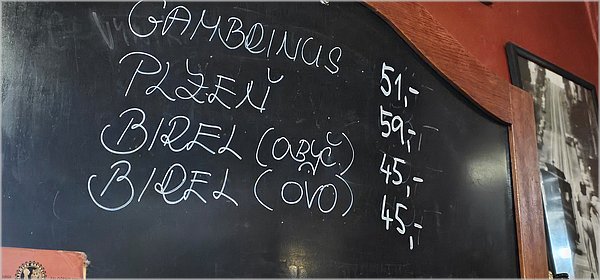 GAMBRINUS 51,-
PLZEŇ 59,-
BIREL (OBYČ.) 45,-
BIREL (OVO) 45,-